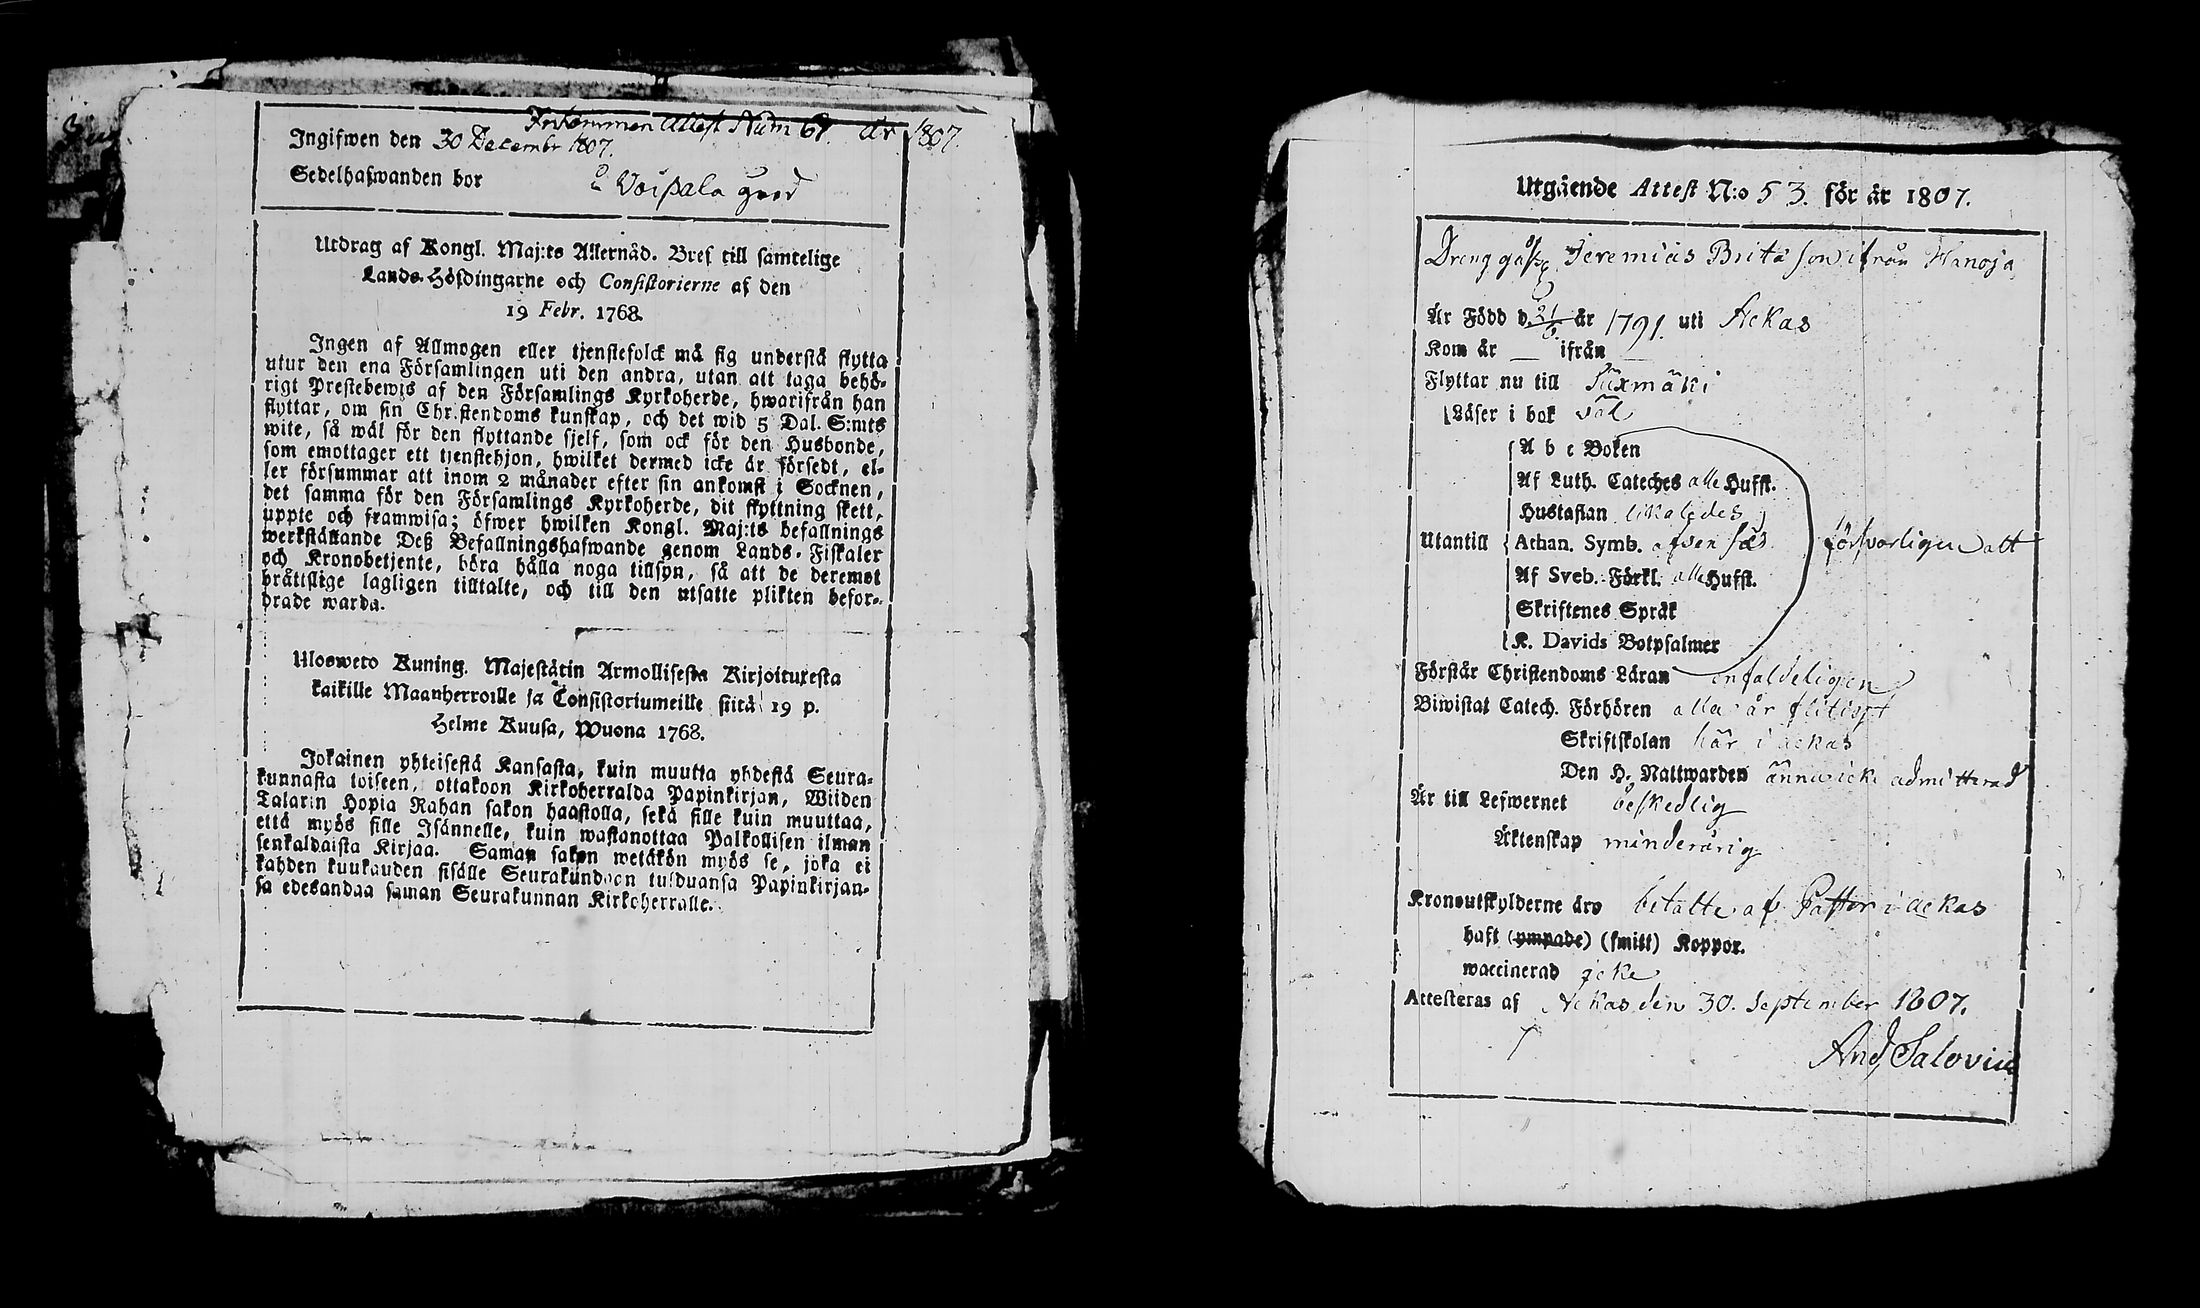 Inkommen Attest Num 67. år 1807.
Ingifwen den 30 Decembr 1807.
Sedelhafwanden bor å Voipala gård
Utdrag af Kongl. Maj:ts Allernåd. Bref till samtelige
Lands-Höfdingarne och Consistorierne af den
19 Febr. 1768.
Ingen af Allmogen eller tjenstefolck må sig understå flytta
utur den ena Församlingen uti den andra, utan att taga behö-
rigt Prestebewis af den Församlings Kyrkoherde, hwarifrån han
flyttar, om sin Christendoms kunskap, och det wid 5 Dal. S:mts
wite, så wäl för den flyttande sjelf, som ock för den Husbonde,
som emottager ett tjenstehjon, hwilket dermed icke är försedt, el-
ler försummar att inom 2 månader efter sin ankomst i Socknen,
det samma för den Församlings Kyrkoherde, dit flyttning skett,
uppte och framwisa; öfwer hwilken Kongl. Maj:ts befallnings
werkställande Deß Befallningshafwande genom Lands-Fiskaler
och Kronobetjente, böra hålla noga tillsyn, så att de deremot
bråttslige lagligen tilltalte, och till den utsatte plikten befor-
drade warda.
Ulosweto Kuning. Majestätin Armollisesta Kirjoituxesta
kaikille Maanherroille ja Consistoriumeille siitä 19 p.
Helme Kuusa, Wuona 1768.
Jokainen yhteisestä Kansasta, kuin muutta yhdestä Seura-
kunnasta toiseen, ottakoon Kirkoherralda Papinkirjan, Wiiden
Talarin Hopia Rahan sakon haastolla, sekä sille kuin muuttaa,
että myös sille Isännelle, kuin wastanottaa Palkollisen ilman
senkaldaista Kirjaa. Saman sakon wetäkön myös se, joka ei
kahden kuukauden sisälle Seurakundaan tulduansa Papinkirjan-
sa edesandaa saman Seurakunnan Kirkoherralle.
Utgående Attest N:o 53. för år 1807.
Dreng Jeremias Brita son ifrån Hanoja
Är Född d. 21/5 år 1791. uti Ackas
Kom år — ifrån —
Flyttar nu till Säxmäki
Läser i bok väl
A b c Boken
Af Luth. Cateches alle Hufst.
Hustaflan likaledes
Utantill Athan. Symb. försvarligen att
Af Sveb. Förkl. alle Hufst.
Skriftenes Språk
K. Davids Botpsalmer
Förstår Christendoms Läran enfaldeligen
Biwistat Catech. Förhören alla år flitigt
Skriftskolan här i Ackas
Den H. Nattwarden ännu icke admitterad
Är till Lefwernet beskedlig
Äktenskap minderårig
Kronoutskylderne äro betalte af Pastor i Ackas
haft (ympade) (smitt) Koppor.
waccinerad icke
Attesteras af Ackas den 30. September 1807.
And. Salovius